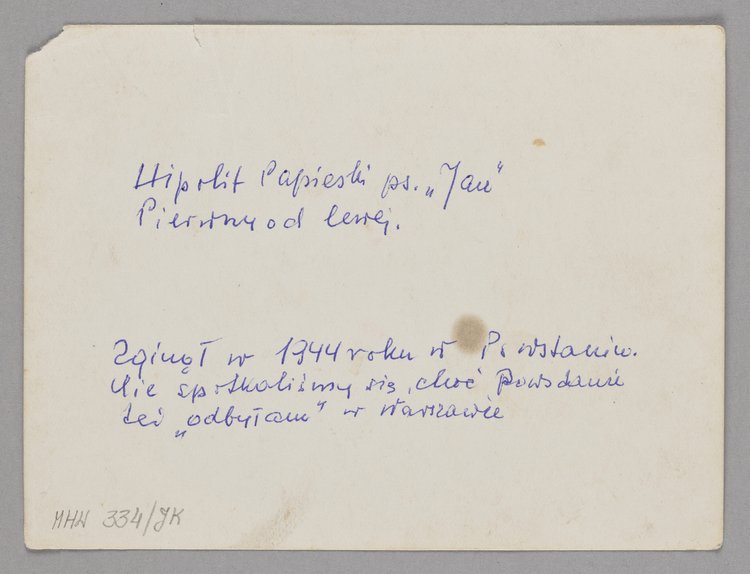 Hipolit Papieski ps. „Jan"
Pierwszy od lewej.
Zginął w 1944 roku w Powstaniu.
Nie spotkaliśmy się, choć Powstanie
też „odbyłam" w Warszawie
MHW 334/JK